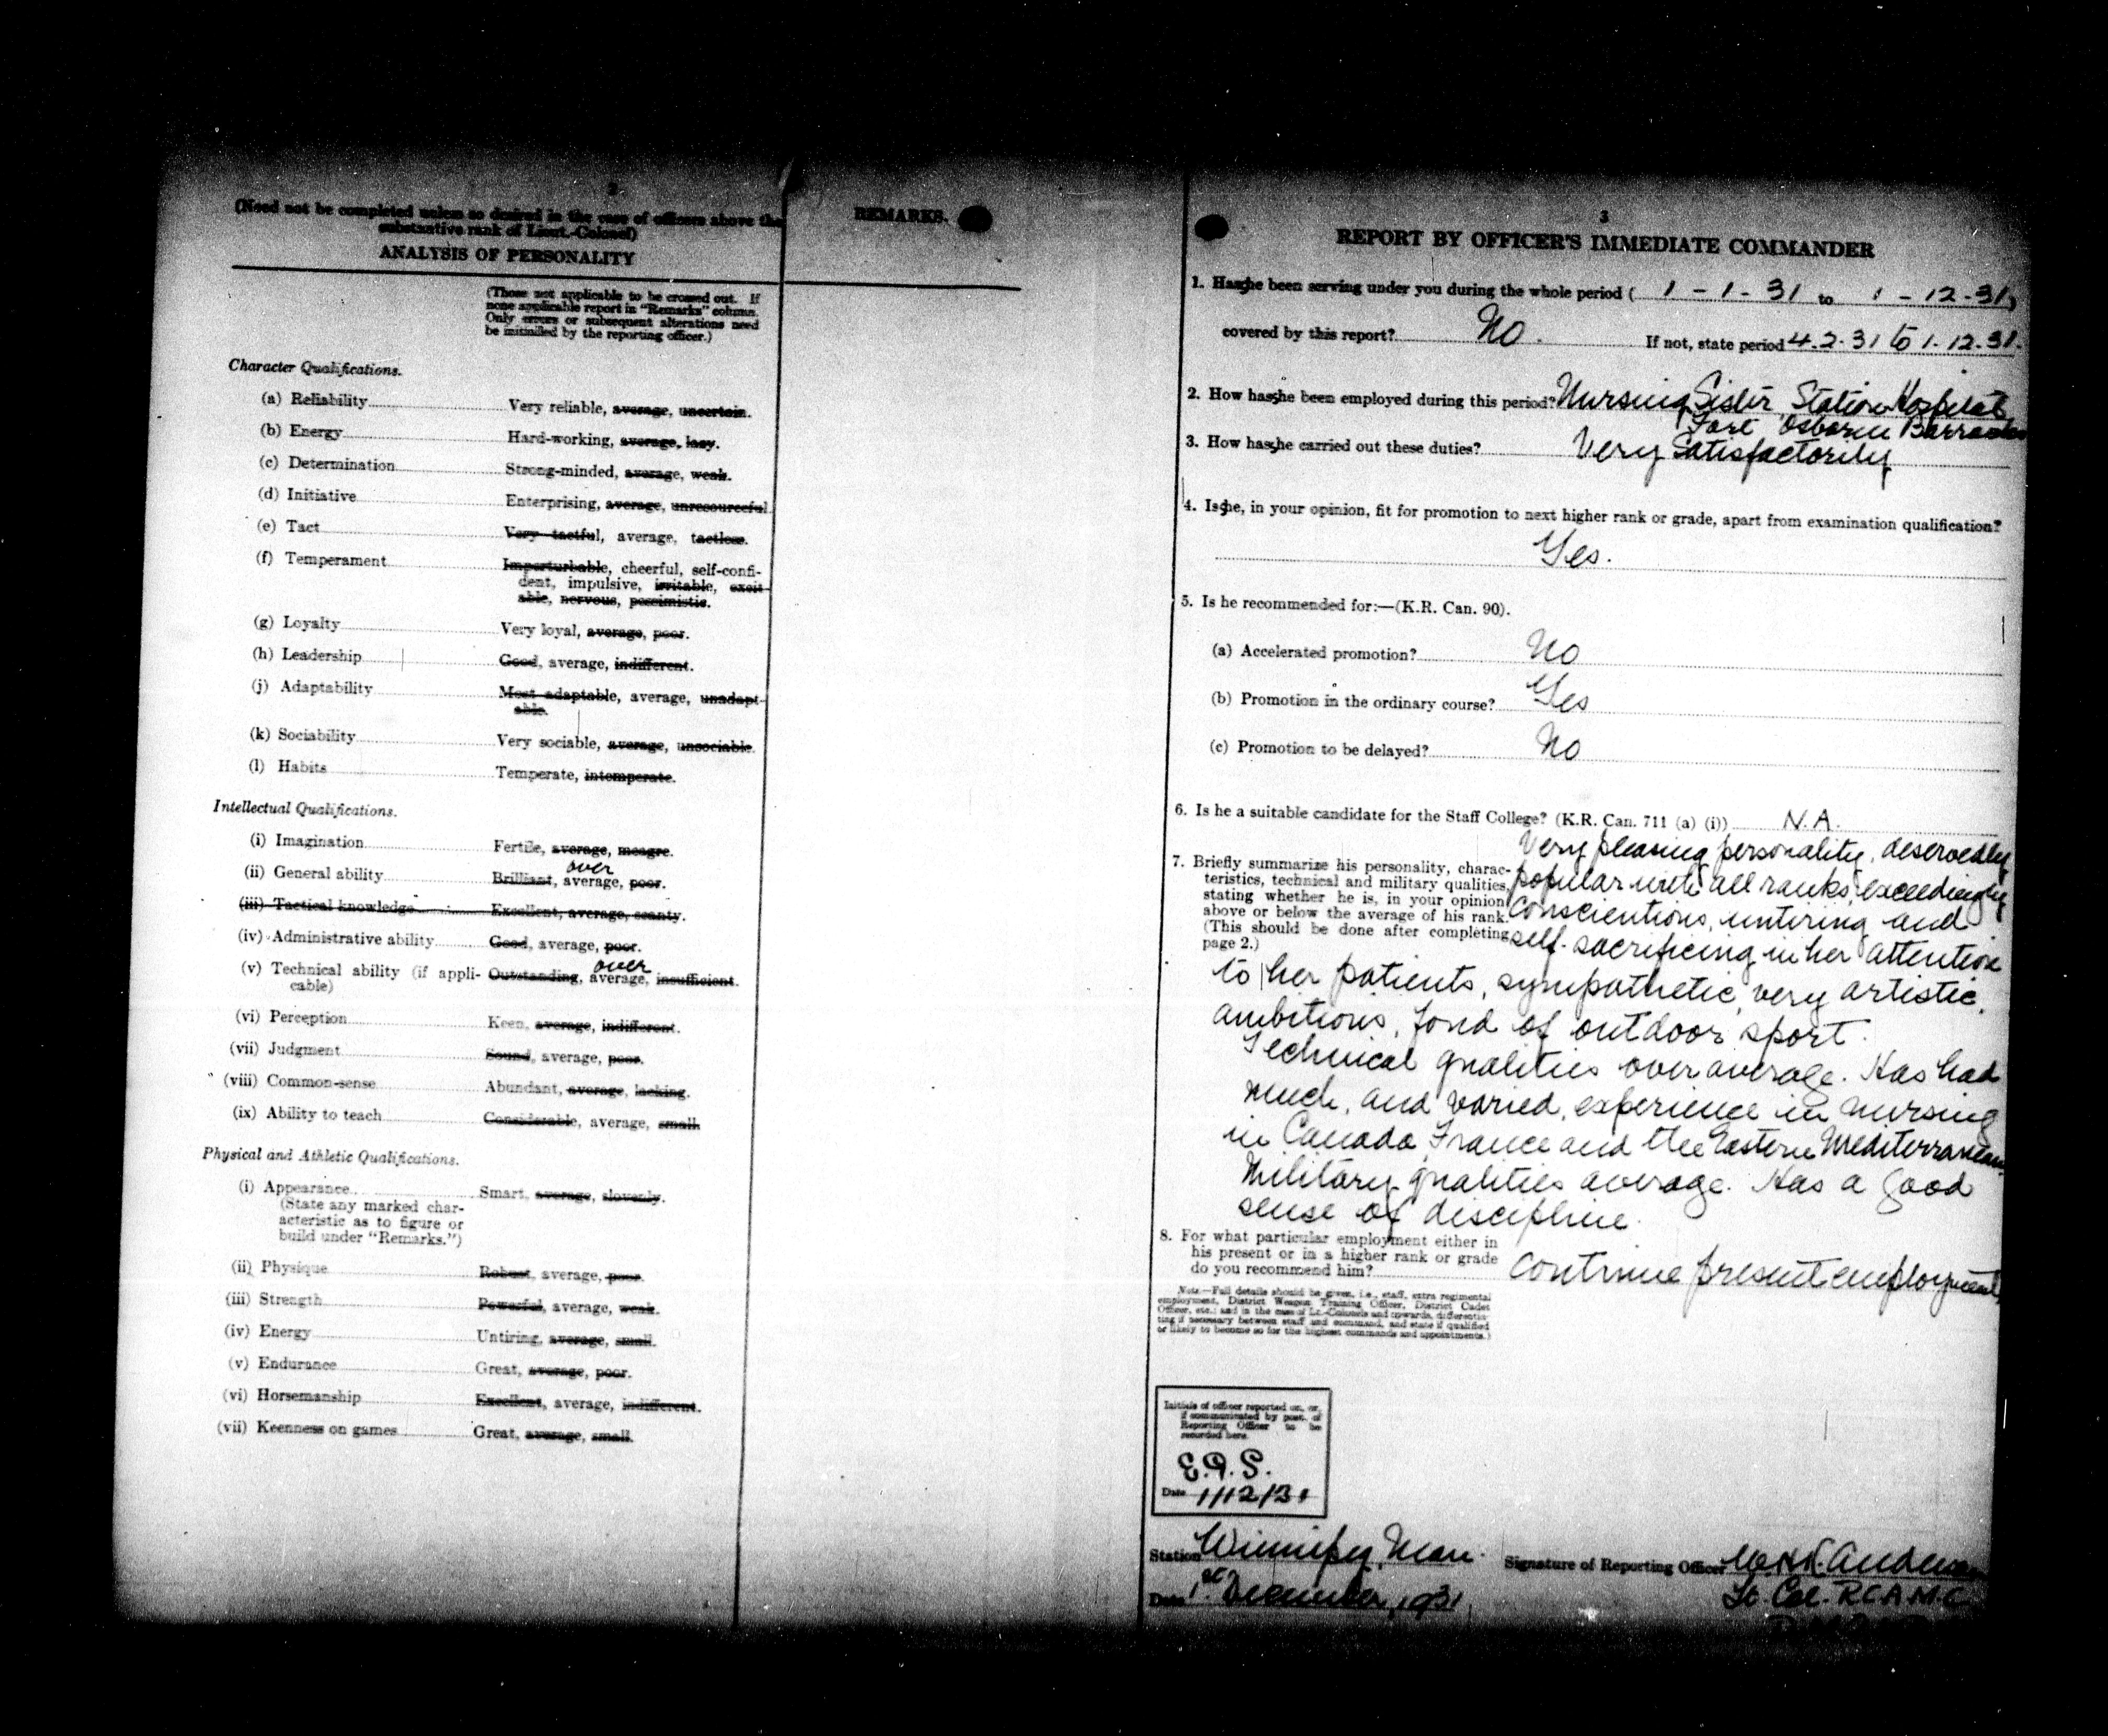 2
(Need not be completed unless so desired in the case of officers above the
substantive rank of Lieut.-Colonel)
ANALYSIS OF PERSONALITY
REMARKS.
(Those not applicable to be crossed out. If
none applicable report in "Remarks" column.
Only errors or subsequent alterations need
be initialled by the reporting officer.)
Character Qualifications.
(a) Reliability Very reliable, average, uncertain.
(b) Energy Hard-working, average, lazy.
(c) Determination Strong-minded, average, weak.
(d) Initiative Enterprising, average, unresourceful.
(e) Tact Very tactful, average, tactless.
(f) Temperament Imperturbable, cheerful, self-confi-
dent, impulsive, irritable, excit-
able, nervous, pessimistic.
(g) Loyalty Very loyal, average, poor.
(h) Leadership Good, average, indifferent.
(j) Adaptability Most adaptable, average, unadapt-
able.
(k) Sociability Very sociable, average, unsociable.
(l) Habits Temperate, intemperate.
Intellectual Qualifications.
(i) Imagination Fertile, average, meagre.
over
(ii) General ability Brilliant, average, poor.
(iii) Tactical knowledge Excellent, average, scanty.
(iv) Administrative ability Good, average, poor.
over
(v) Technical ability (if appli- Outstanding, average, insufficient.
cable)
(vi) Perception Keen, average, indifferent.
(vii) Judgment Sound, average, poor.
(viii) Common-sense Abundant, average, lacking.
(ix) Ability to teach Considerable, average, small.
Physical and Athletic Qualifications.
(i) Appearance Smart, average, slovenly.
(State any marked char-
acteristic as to figure or
build under "Remarks.")
(ii) Physique Robust, average, poor.
(iii) Strength Powerful, average, weak.
(iv) Energy Untiring, average, small.
(v) Endurance Great, average, poor.
(vi) Horsemanship Excellent, average, indifferent.
(vii) Keenness on games Great, average, small.
3
REPORT BY OFFICER'S IMMEDIATE COMMANDER
1. Has she been serving under you during the whole period ( 1-1-31 to 1-12-31)
covered by this report? No. If not, state period 4.2.31 to 1.12.31.
2. How has she been employed during this period? Nursing Sister Station Hospital
Fort Osborne Barracks
3. How has she carried out these duties? Very Satisfactorily
4. Is she, in your opinion, fit for promotion to next higher rank or grade, apart from examination qualification?
Yes.
5. Is he recommended for:—(K.R. Can. 90).
(a) Accelerated promotion? No
(b) Promotion in the ordinary course? Yes
(c) Promotion to be delayed? No
6. Is he a suitable candidate for the Staff College? (K.R. Can. 711 (a) (i)) N.A.
7. Briefly summarize his personality, charac-
teristics, technical and military qualities,
stating whether he is, in your opinion
above or below the average of his rank.
(This should be done after completing
page 2.)
Very pleasing personality, deservedly
popular with all ranks, exceedingly
conscientious, untiring and
self-sacrificing in her attention
to her patients, sympathetic, very artistic,
ambitious, fond of outdoor sport.
Technical qualities over average. Has had
much, and varied, experience in nursing
in Canada, France and the Eastern Mediterranean.
Military qualities average. Has a good
sense of discipline.
8. For what particular employment either in
his present or in a higher rank or grade
do you recommend him? Continue present employment.
Note.—Full details should be given, i.e., staff, extra regimental
employment, District Weapon Training Officer, District Cadet
Officer, etc.; and in the case of Lt.-Colonels and upwards, differentia-
ting if necessary between staff and command, and state if qualified
or likely to become so for the highest commands and appointments.)
Initials of officer reported on, or,
if communicated by post, of
Reporting Officer to be
recorded here.
E.A.S.
Date 1/12/31
Station Winnipeg, Man. Signature of Reporting Officer
Date 1st December, 1931 Lt. Col. R.C.A.M.C.